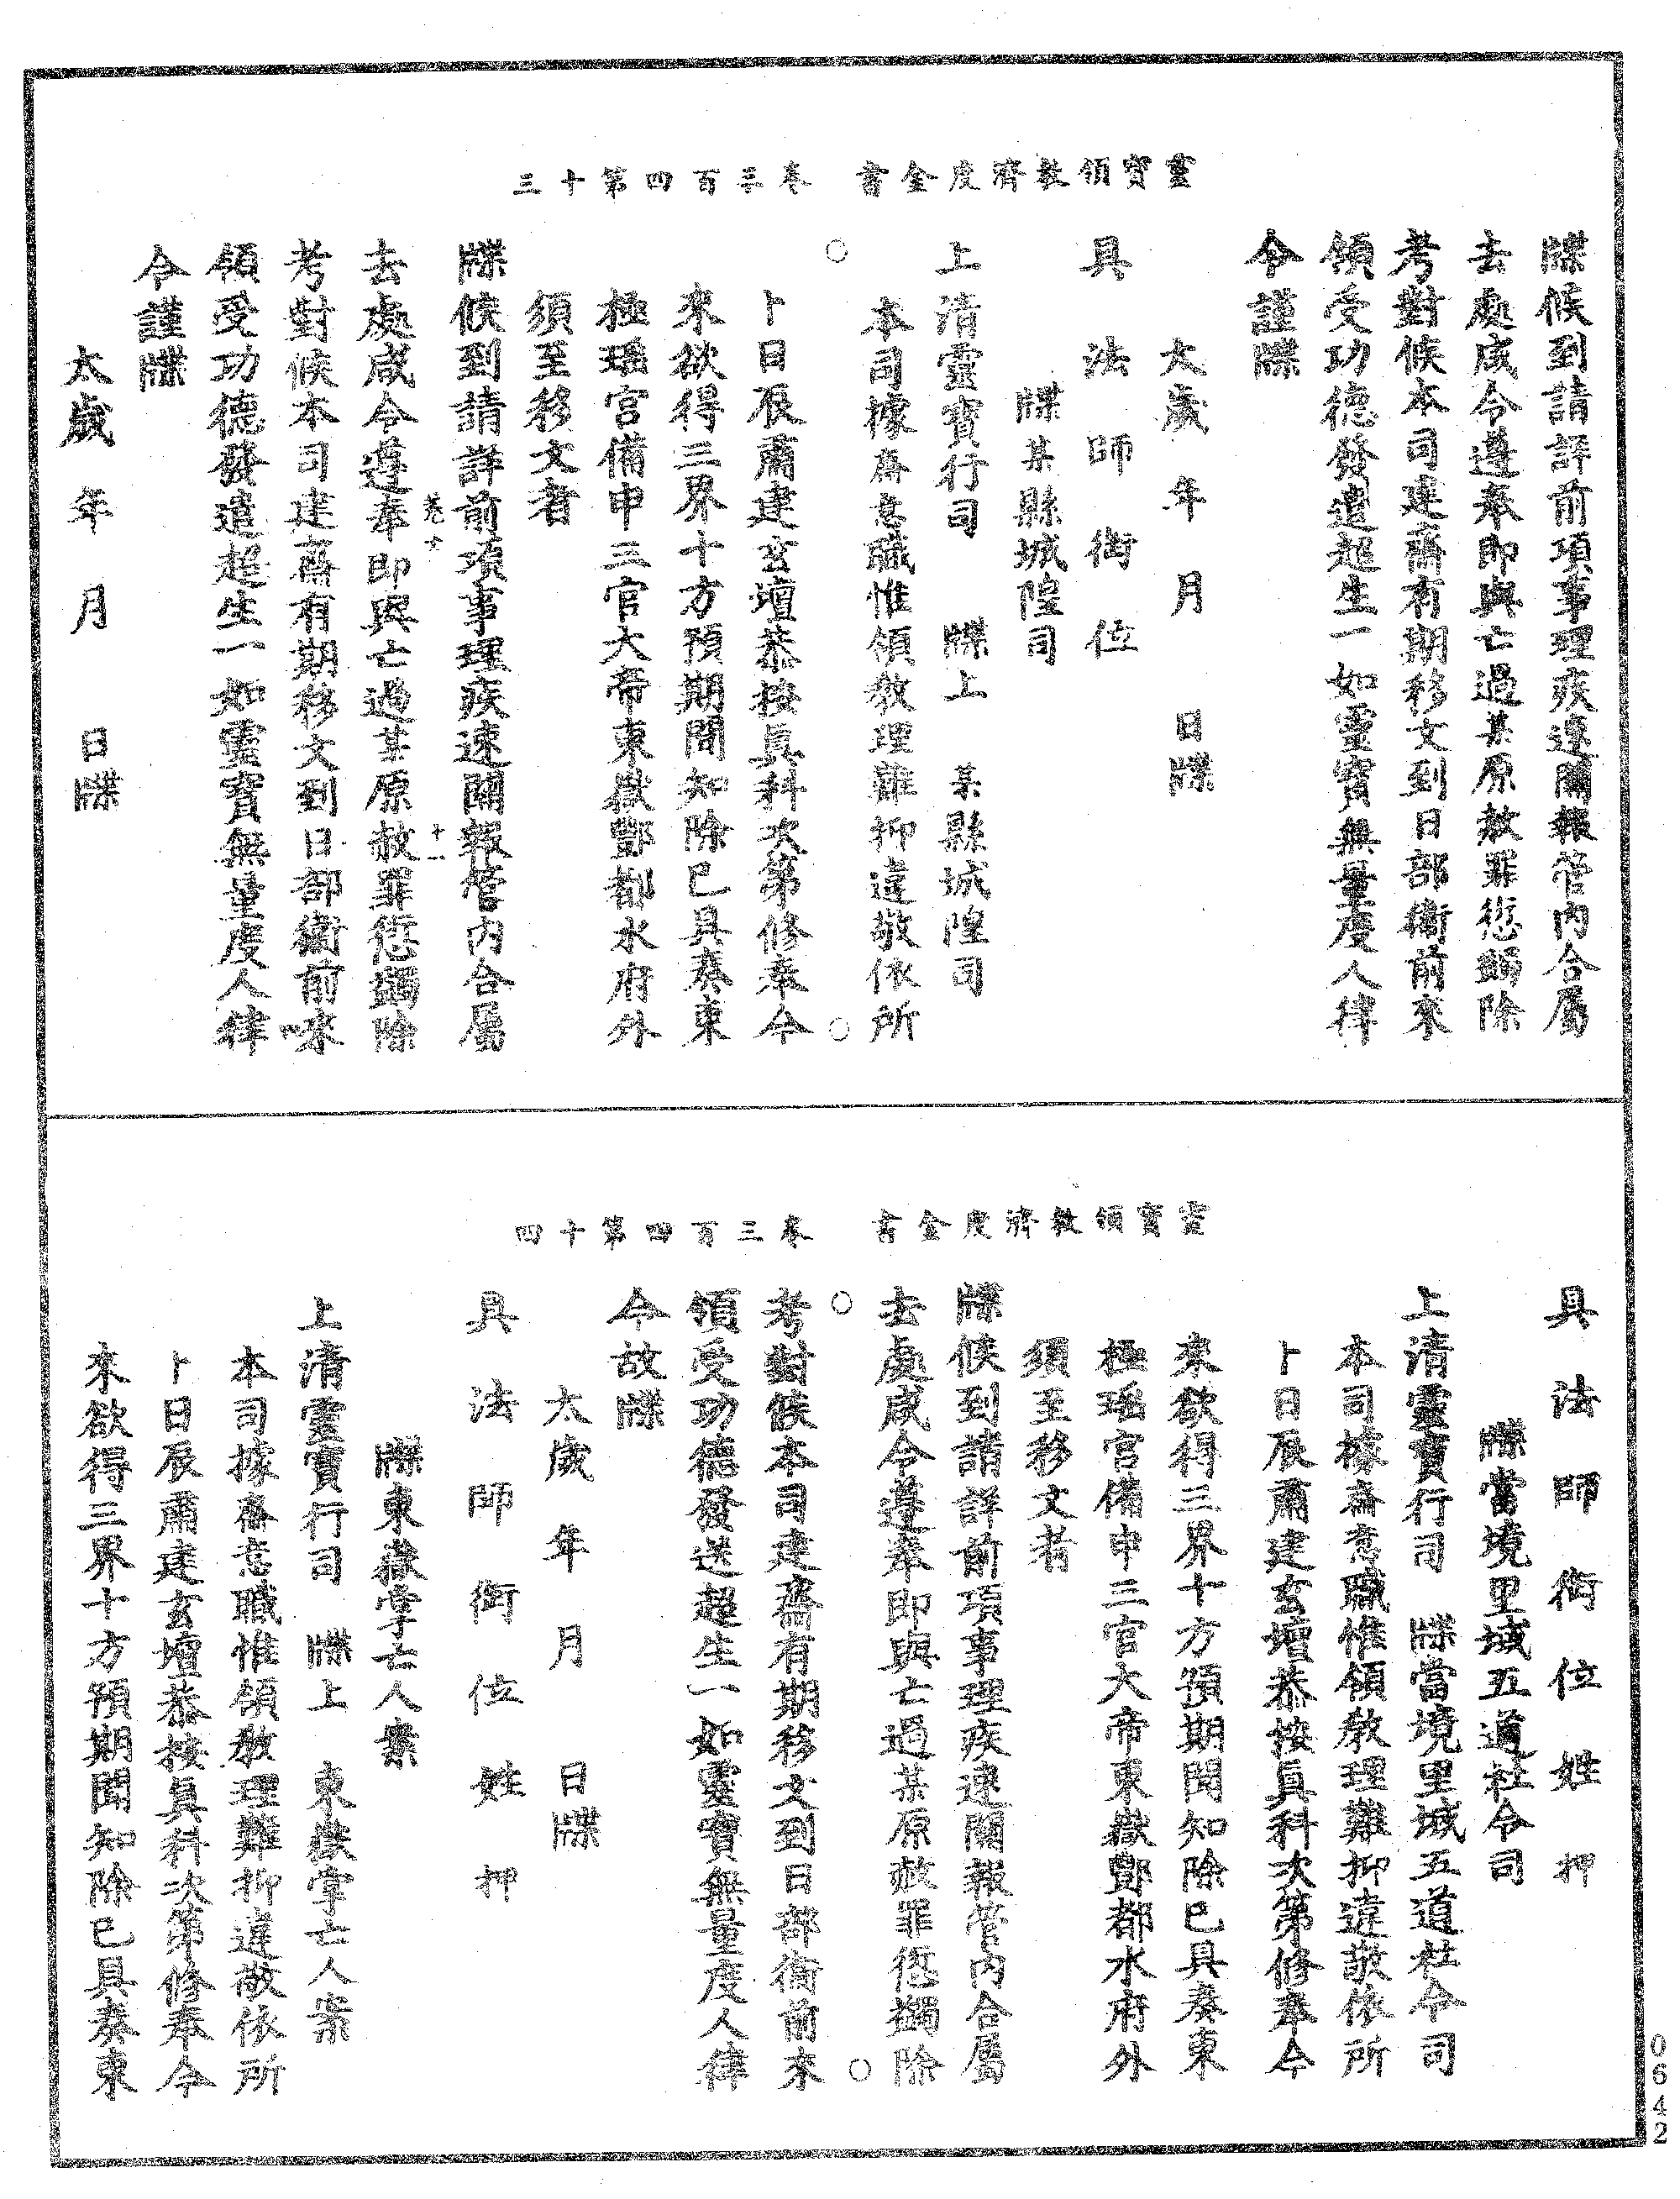 靈寶領教濟度金書　卷三百四第十三
牒候到請詳前項事理疾速關報管內合屬
去處咸令遵奉即與亡過某原赦罪愆蠲除
考對候本司建齋有期移文到日部衛前來
領受功德發遣超生一如靈寶無量度人律
令謹牒
太歲　年　月　日牒
具　法　師　銜　位
牒某縣城隍司
上清靈寶行司　牒上　某縣城隍司
本司據齋意職惟領教理難抑違敬依所
卜日辰肅建玄壇恭按眞科次第修奉今
來欲得三界十方預期聞知除已具奏東
極瑤宮備申三官大帝東嶽酆都水府外
須至移文者
牒候到請詳前項事理疾速關報管內合屬
去處咸令遵奉即與亡過某原赦罪愆蠲除
考對候本司建齋有期移文到日部衛前來
領受功德發遣超生一如靈寶無量度人律
令謹牒
太歲　年　月　日牒
靈寶領教濟度金書　卷三百四第十四
具　法　師　銜　位　姓　押
牒當境里域五道社令司
上清靈寶行司　牒當境里域五道社令司
本司據齋意職惟領教理難抑違敬依所
卜日辰肅建玄壇恭按眞科次第修奉今
來欲得三界十方預期聞知除已具奏東
極瑤宮備申三官大帝東嶽酆都水府外
須至移文者
牒候到請詳前項事理疾速關報管內合屬
去處咸令遵奉即與亡過某原赦罪愆蠲除
考對候本司建齋有期移文到日部衛前來
領受功德發送超生一如靈寶無量度人律
令故牒
太歲　年　月　日牒
具　法　師　銜　位　姓　押
牒東嶽掌亡人案
上清靈寶行司　牒上　東嶽掌亡人案
本司據齋意職惟領教理難抑違敬依所
卜日辰肅建玄壇恭按眞科次第修奉今
來欲得三界十方預期聞知除已具奏東
0642